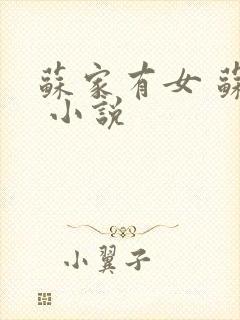 蘇家有女 蘇
小說
小翼子